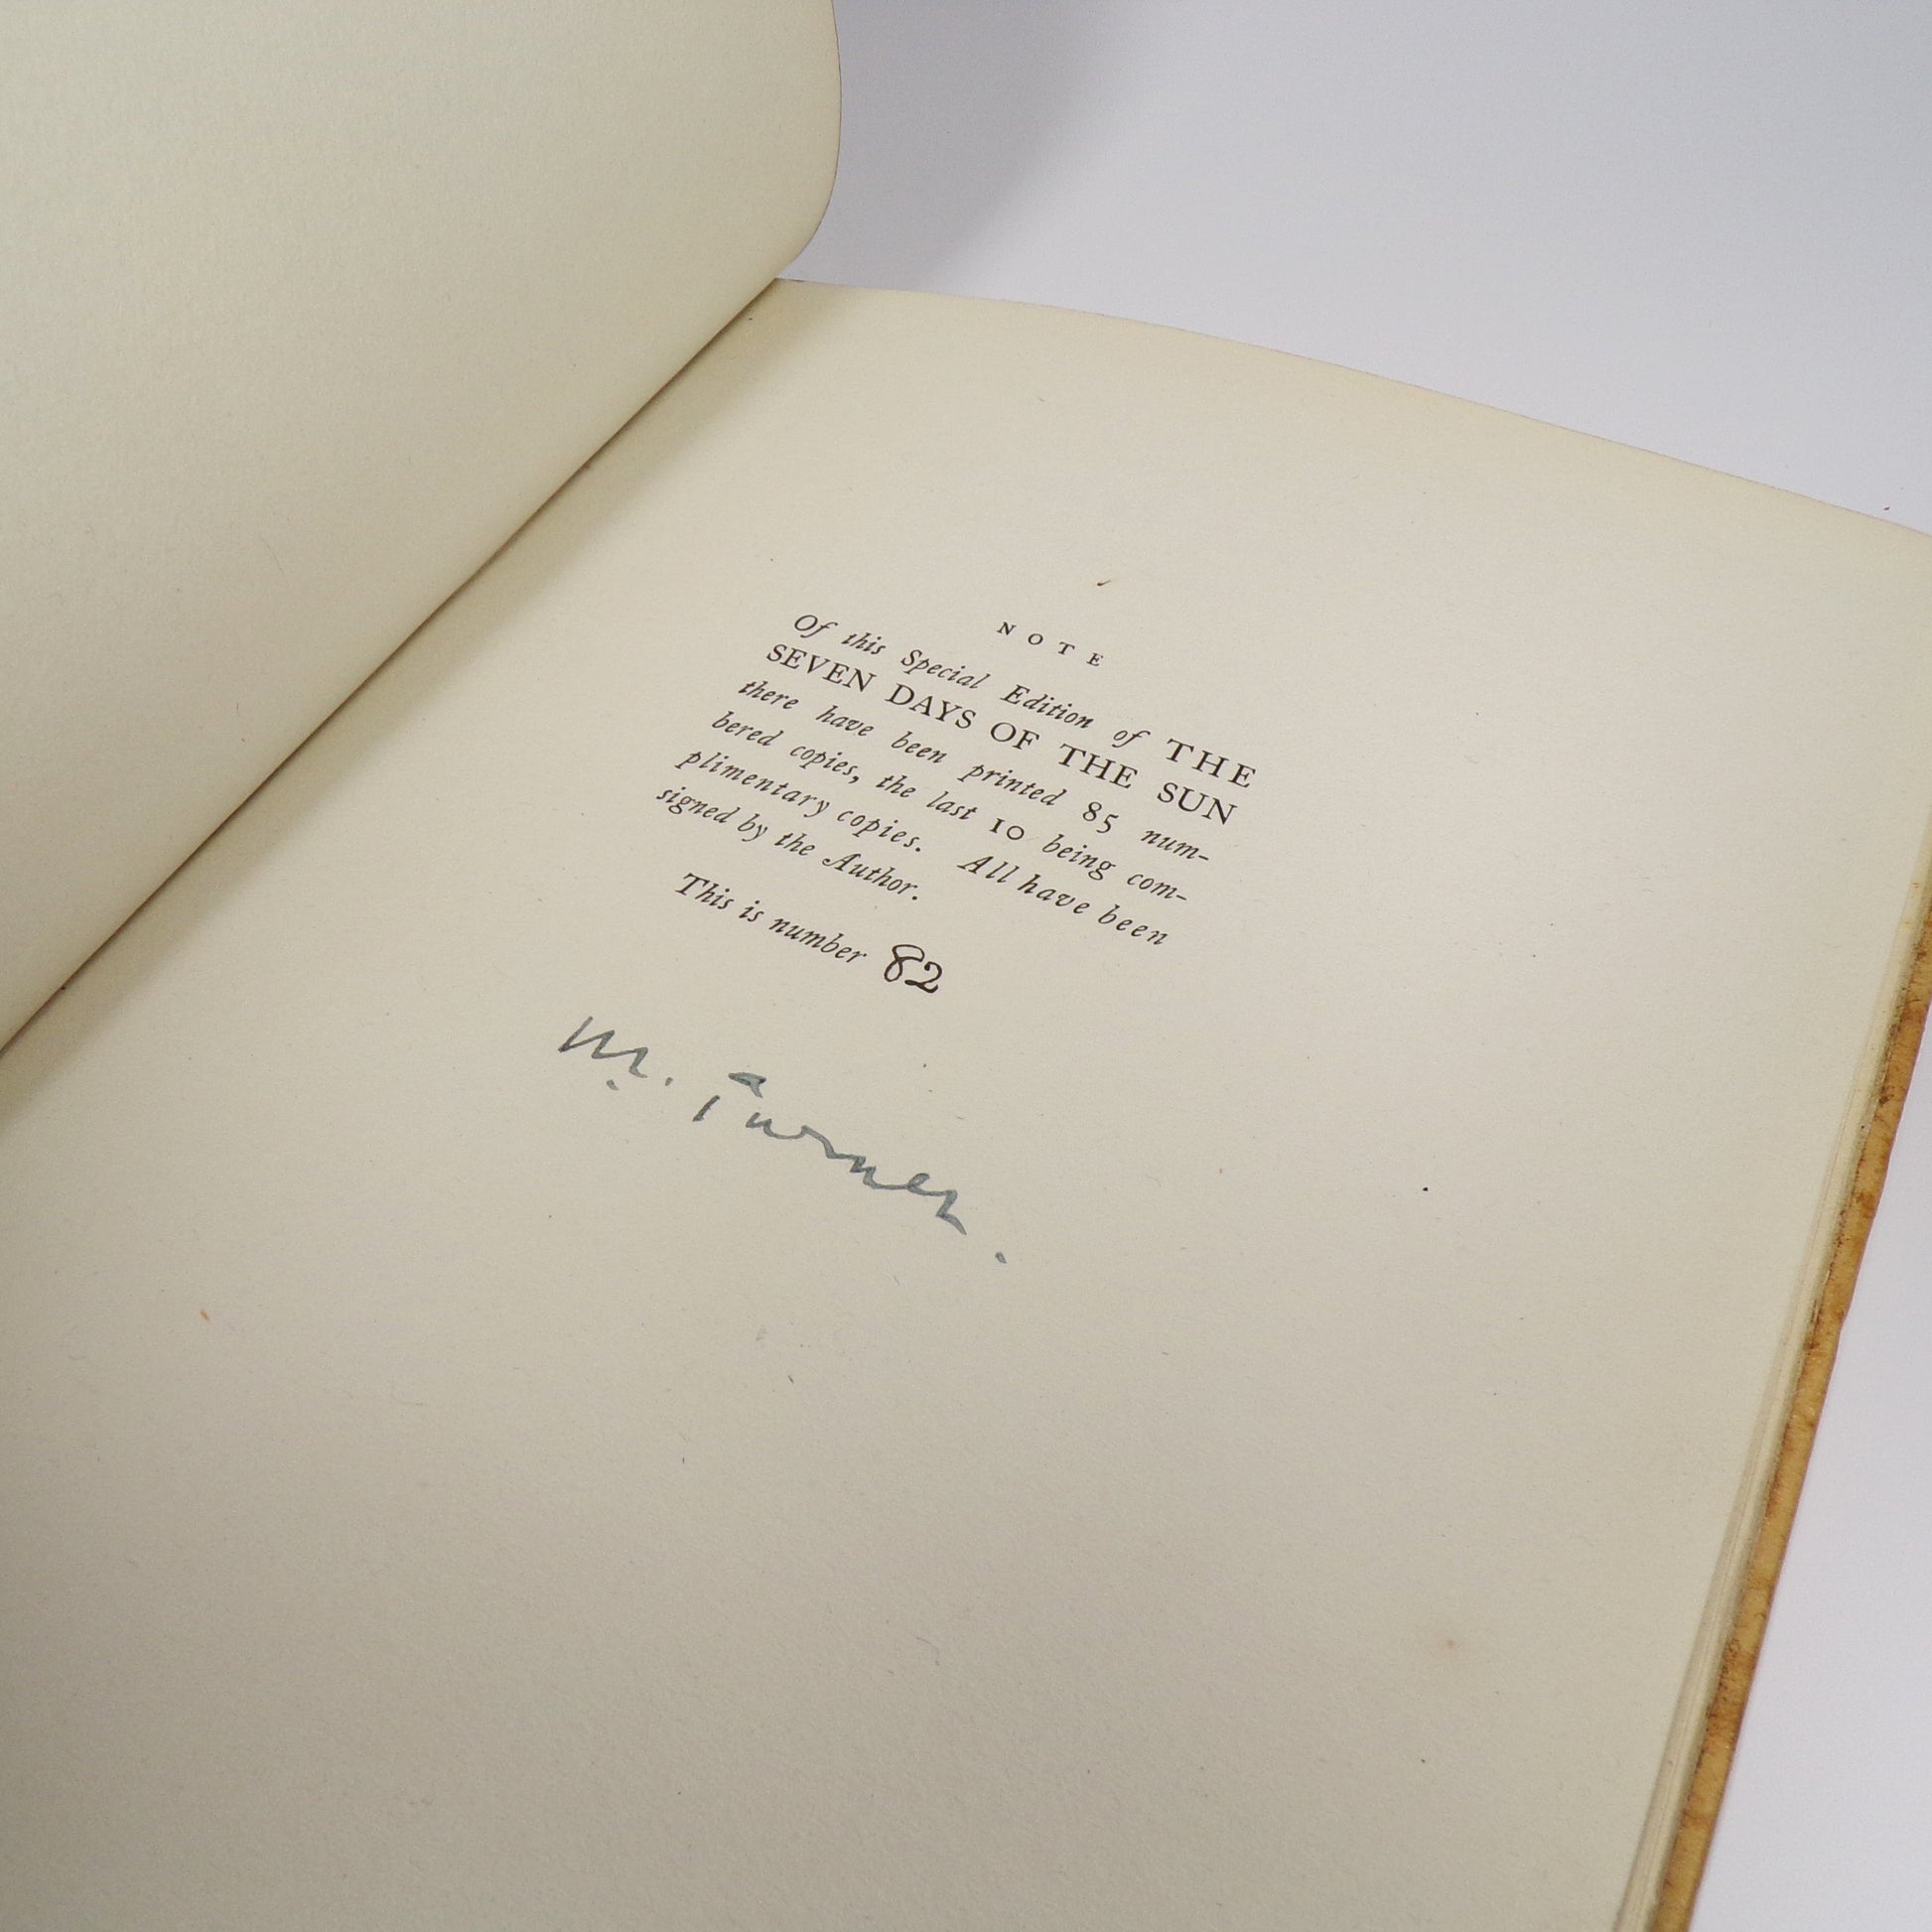 NOTE
Of this Special Edition of THE
SEVEN DAYS OF THE SUN
there have been printed 85 num-
bered copies, the last 10 being com-
plimentary copies. All have been
signed by the Author.
This is number 82
M. Turner.